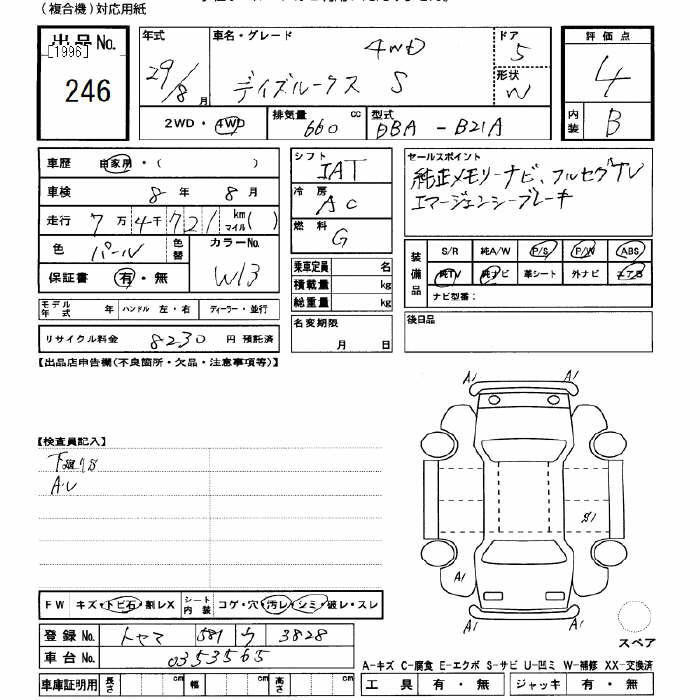 (複合機)対応用紙
出品No.
[1996]
246
年式
29/8月
車名・グレード
4WD
デイズルークス S
ドア
5
形状
W
評価点
4
内装
B
2WD・4WD
排気量 660 cc
型式 DBA - B21A
車歴 自家用・( )
車検 8年 8月
走行 7万4千721 km マイル( )
色 パール
色替
カラーNo. W13
保証書 有・無
モデル年式 年
ハンドル 左・右
ディーラー・並行
リサイクル料金 8230 円 預託済
シフト IAT
冷房 AC
燃料 G
乗車定員 名
積載量 kg
総重量 kg
名変期限
月 日
セールスポイント
純正メモリーナビ、フルセグTV
エマージェンシーブレーキ
装備品
S/R 純A/W P/S P/W ABS
純TV 純ナビ 革シート 外ナビ エアB
ナビ型番:
後日品
【出品店申告欄(不良箇所・欠品・注意事項等)】
【検査員記入】
A1 A1
S1
A1 A1 A1
FW キズ・トビ石・割レX
シート内装 コゲ・穴・汚レ・シミ・破レ・スレ
登録No. トヤマ 581 ウ 3828
車台No. 0353565
車庫証明用 長さ cm 幅 cm 高さ cm
スペア
A-キズ C-腐食 E-エクボ S-サビ U-凹ミ W-補修 XX-交換済
工具 有・無 ジャッキ 有・無